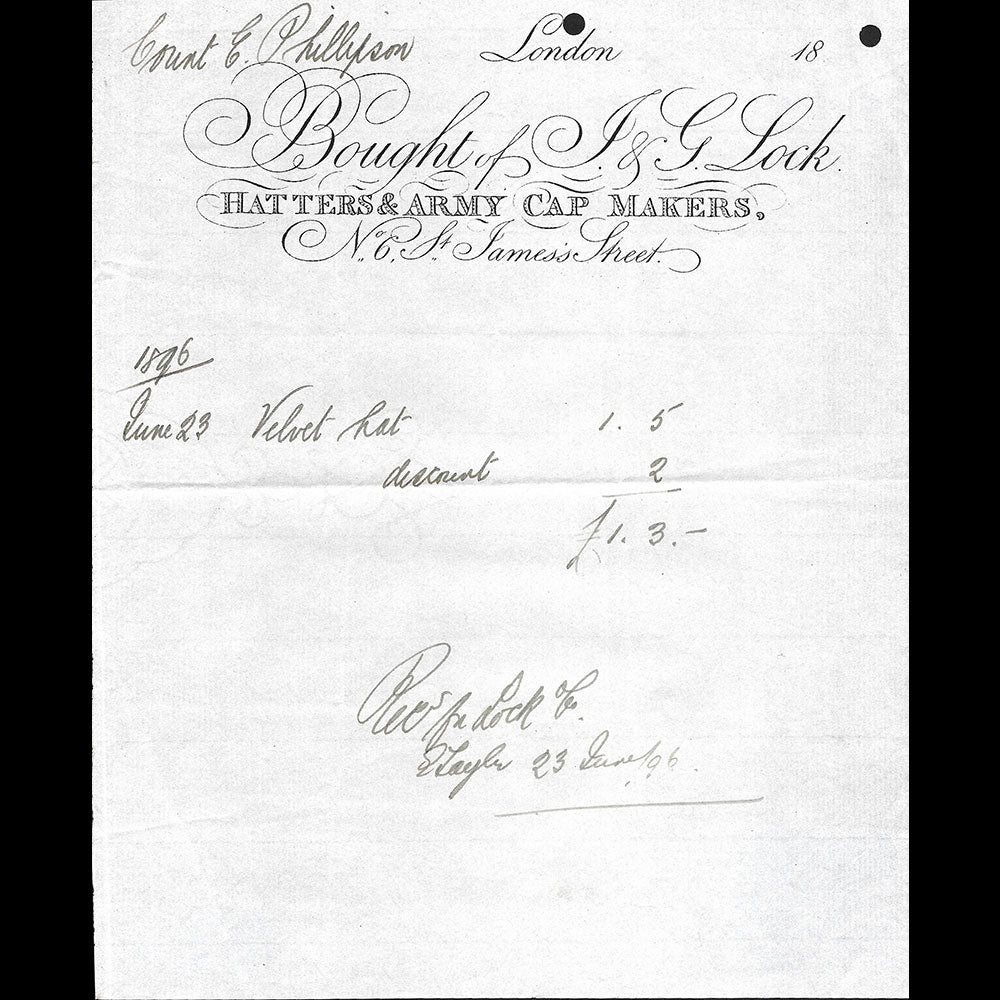 Count E. Phillipson
London 18
Bought of J. & G. Lock.
HATTERS & ARMY CAP MAKERS,
No. 6, St James's Street.
1896
June 23 Velvet hat 1. 5
discount 2
£1. 3. -
Lock & Co.
23 June/96